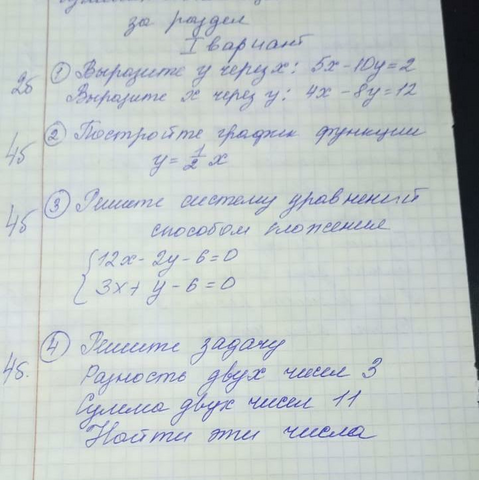 за раздел
I вариант
2б ① Выразите y через x: 5x-10y=2
Выразите x через y: 4x-8y=12
4б ② Постройте график функции
y=1/2 x
4б ③ Решите систему уравнений
способом сложения
{12x-2y-6=0
3x+y-6=0
4б. ④ Решите задачу
Разность двух чисел 3
Сумма двух чисел 11
Найти эти числа